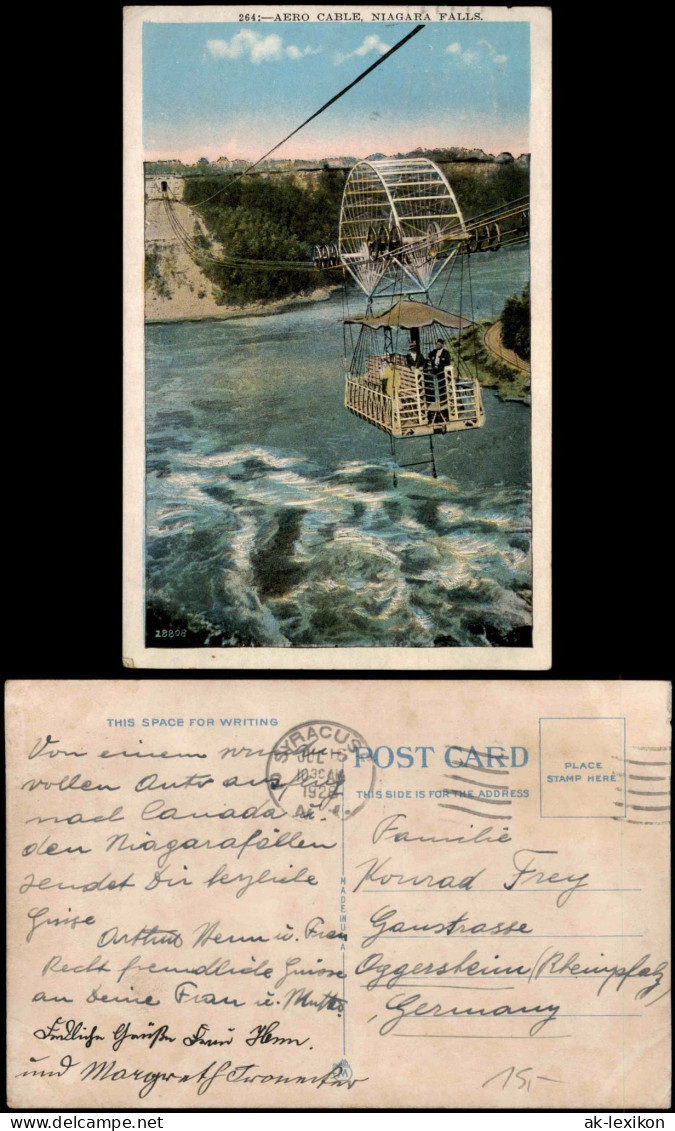 264:—AERO CABLE, NIAGARA FALLS.
28808
THIS SPACE FOR WRITING
SYRACUSE
JUL
10 30 AM
192
N.Y.
POST CARD
THIS SIDE IS FOR THE ADDRESS
PLACE
STAMP HERE
MADE IN U.S.A.
Von einem wunder
vollen Auto ausflug
nach Canada u.
den Niagarafällen
sendet Dir herzliche
Grüsse
Arthur Henn u. Frau
Recht freundliche Grüsse
an Deine Frau u. Mutter
Grüße Frau Henn.
und Margreth
Familie
Konrad Frey
Gaustrasse
Oggersheim (Rheinpfalz)
Germany
15,-
ak-lexikon